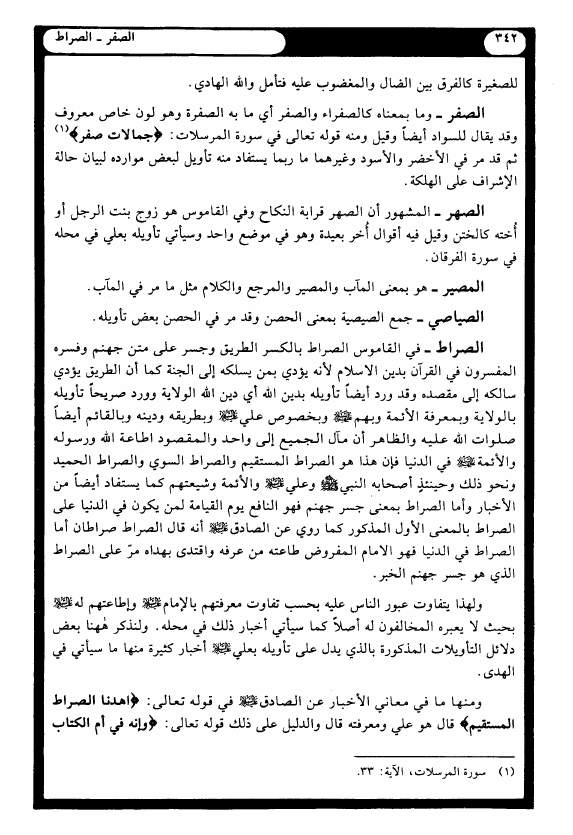 ٣٤٢
الصفر ـ الصراط
للصغيرة كالفرق بين الضال والمغضوب عليه فتأمل والله الهادي.
الصفر ـ وما بمعناه كالصفراء والصفر أي ما به الصفرة وهو لون خاص معروف
وقد يقال للسواد أيضاً وقيل ومنه قوله تعالى في سورة المرسلات: ﴿جمالات صفر﴾(١)
ثم قد مر في الأخضر والأسود وغيرهما ما ربما يستفاد منه تأويل لبعض موارده لبيان حالة
الإشراف على الهلكة.
الصهر ـ المشهور أن الصهر قرابة النكاح وفي القاموس هو زوج بنت الرجل أو
أُخته كالختن وقيل فيه أقوال أُخر بعيدة وهو في موضع واحد وسيأتي تأويله بعلي في محله
في سورة الفرقان.
المصير ـ هو بمعنى المآب والمصير والمرجع والكلام مثل ما مر في المآب.
الصياصي ـ جمع الصيصية بمعنى الحصن وقد مر في الحصن بعض تأويله.
الصراط ـ في القاموس الصراط بالكسر الطريق وجسر على متن جهنم وفسره
المفسرون في القرآن بدين الاسلام لأنه يؤدي بمن يسلكه إلى الجنة كما أن الطريق يؤدي
سالكه إلى مقصده وقد ورد أيضاً تأويله بدين الله أي دين الله الولاية وورد صريحاً تأويله
بالولاية وبمعرفة الأئمة وبهم ﷺ وبخصوص علي ﷺ وبطريقه ودينه وبالقائم أيضاً
صلوات الله عليه والظاهر أن مآل الجميع إلى واحد والمقصود اطاعة الله ورسوله
والأئمة ﷺ في الدنيا فإن هذا هو الصراط المستقيم والصراط السوي والصراط الحميد
ونحو ذلك وحينئذٍ أصحابه النبي ﷺ وعلي ﷺ والأئمة وشيعتهم كما يستفاد أيضاً من
الأخبار وأما الصراط بمعنى جسر جهنم فهو النافع يوم القيامة لمن يكون في الدنيا على
الصراط بالمعنى الأول المذكور كما روي عن الصادق ﷺ أنه قال الصراط صراطان أما
الصراط في الدنيا فهو الامام المفروض طاعته من عرفه واقتدى بهداه مرّ على الصراط
الذي هو جسر جهنم الخبر.
ولهذا يتفاوت عبور الناس عليه بحسب تفاوت معرفتهم بالإمام ﷺ وإطاعتهم له ﷺ
بحيث لا يعبره المخالفون له أصلاً كما سيأتي أخبار ذلك في محله. ولنذكر هٰهنا بعض
دلائل التأويلات المذكورة بالذي يدل على تأويله بعلي ﷺ أخبار كثيرة منها ما سيأتي في
الهدى.
ومنها ما في معاني الأخبار عن الصادق ﷺ في قوله تعالى: ﴿اهدنا الصراط
المستقيم﴾ قال هو علي ومعرفته قال والدليل على ذلك قوله تعالى: ﴿وإنه في أم الكتاب
(١) سورة المرسلات، الآية: ٣٣.